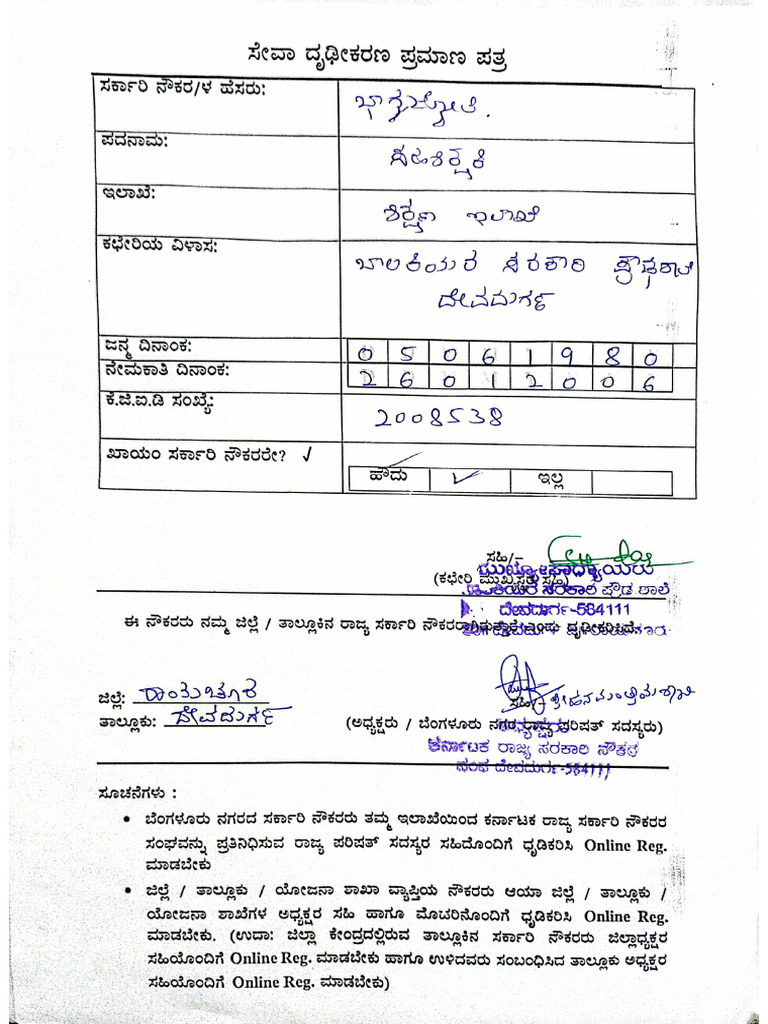 ಸೇವಾ ದೃಢೀಕರಣ ಪ್ರಮಾಣ ಪತ್ರ
ಸರ್ಕಾರಿ ನೌಕರ/ಳ ಹೆಸರು: ಭಾಗ್ಯಜ್ಯೋತಿ.
ಪದನಾಮ: ಸಹಶಿಕ್ಷಕಿ
ಇಲಾಖೆ: ಶಿಕ್ಷಣ ಇಲಾಖೆ
ಕಛೇರಿಯ ವಿಳಾಸ: ಬಾಲಕಿಯರ ಸರಕಾರಿ ಪ್ರೌಢಶಾಲೆ
ದೇವದುರ್ಗ
ಜನ್ಮ ದಿನಾಂಕ: 0 5 0 6 1 9 8 0
ನೇಮಕಾತಿ ದಿನಾಂಕ: 2 6 0 1 2 0 0 6
ಕೆ.ಜಿ.ಐ.ಡಿ ಸಂಖ್ಯೆ: 2008538
ಖಾಯಂ ಸರ್ಕಾರಿ ನೌಕರರೇ? ✓
ಹೌದು ✓ ಇಲ್ಲ
ಸಹಿ/-
ಮುಖ್ಯೋಪಾಧ್ಯಾಯರು
(ಕಛೇರಿ ಮುಖ್ಯಸ್ಥರ ಸಹಿ)
ಬಾಲಕಿಯರ ಸರಕಾರಿ ಪ್ರೌಢ ಶಾಲೆ
ದೇವದುರ್ಗ-584111
ಈ ನೌಕರರು ನಮ್ಮ ಜಿಲ್ಲೆ / ತಾಲ್ಲೂಕಿನ ರಾಜ್ಯ ಸರ್ಕಾರಿ ನೌಕರರಾಗಿರುತ್ತಾರೆ ಎಂದು ದೃಢೀಕರಿಸಿದೆ.
ಜಿಲ್ಲೆ: ರಾಯಚೂರ ಸಹಿ/-
ತಾಲ್ಲೂಕು: ದೇವದುರ್ಗ (ಅಧ್ಯಕ್ಷರು / ಬೆಂಗಳೂರು ನಗರ ರಾಜ್ಯ ಪರಿಷತ್ ಸದಸ್ಯರು)
ಅಧ್ಯಕ್ಷರು
ಕರ್ನಾಟಕ ರಾಜ್ಯ ಸರಕಾರಿ ನೌಕರ
ಸಂಘ ದೇವದುರ್ಗ-584111
ಸೂಚನೆಗಳು :
• ಬೆಂಗಳೂರು ನಗರದ ಸರ್ಕಾರಿ ನೌಕರರು ತಮ್ಮ ಇಲಾಖೆಯಿಂದ ಕರ್ನಾಟಕ ರಾಜ್ಯ ಸರ್ಕಾರಿ ನೌಕರರ
ಸಂಘವನ್ನು ಪ್ರತಿನಿಧಿಸುವ ರಾಜ್ಯ ಪರಿಷತ್ ಸದಸ್ಯರ ಸಹಿದೊಂದಿಗೆ ಧೃಡಿಕರಿಸಿ Online Reg.
ಮಾಡಬೇಕು
• ಜಿಲ್ಲೆ / ತಾಲ್ಲೂಕು / ಯೋಜನಾ ಶಾಖಾ ವ್ಯಾಪ್ತಿಯ ನೌಕರರು ಆಯಾ ಜಿಲ್ಲೆ / ತಾಲ್ಲೂಕು /
ಯೋಜನಾ ಶಾಖೆಗಳ ಅಧ್ಯಕ್ಷರ ಸಹಿ ಹಾಗೂ ಮೊಹರಿನೊಂದಿಗೆ ಧೃಡಿಕರಿಸಿ Online Reg.
ಮಾಡಬೇಕು. (ಉದಾ: ಜಿಲ್ಲಾ ಕೇಂದ್ರದಲ್ಲಿರುವ ತಾಲ್ಲೂಕಿನ ಸರ್ಕಾರಿ ನೌಕರರು ಜಿಲ್ಲಾಧ್ಯಕ್ಷರ
ಸಹಿಯೊಂದಿಗೆ Online Reg. ಮಾಡಬೇಕು ಹಾಗೂ ಉಳಿದವರು ಸಂಬಂಧಿಸಿದ ತಾಲ್ಲೂಕು ಅಧ್ಯಕ್ಷರ
ಸಹಿಯೊಂದಿಗೆ Online Reg. ಮಾಡಬೇಕು)